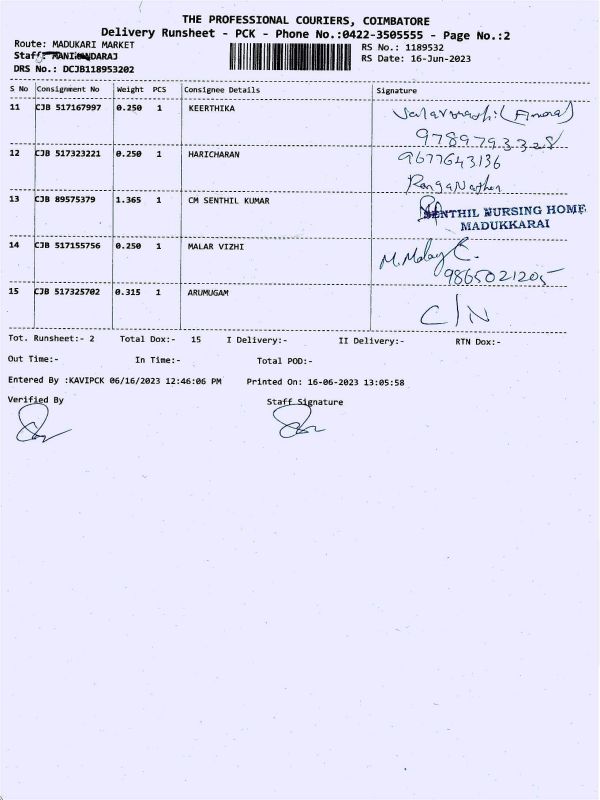 THE PROFESSIONAL COURIERS, COIMBATORE
Delivery Runsheet - PCK - Phone No.:0422-3505555 - Page No.:2
Route: MADUKARI MARKET
RS No.: 1189532
Staff: MANIKANDARAJ
RS Date: 16-Jun-2023
DRS No.: DCJB118953202
S No Consignment No Weight PCS Consignee Details Signature
11 CJB 517167997 0.250 1 KEERTHIKA
9789793328
12 CJB 517323221 0.250 1 HARICHARAN 9677643136
RangaNathan
13 CJB 89575379 1.365 1 CM SENTHIL KUMAR SENTHIL NURSING HOME
MADUKKARAI
14 CJB 517155756 0.250 1 MALAR VIZHI M.Malar
9865021205
15 CJB 517325702 0.315 1 ARUMUGAM C/N
Tot. Runsheet:- 2 Total Dox:- 15 I Delivery:- II Delivery:- RTN Dox:-
Out Time:- In Time:- Total POD:-
Entered By :KAVIPCK 06/16/2023 12:46:06 PM Printed On: 16-06-2023 13:05:58
Verified By Staff Signature